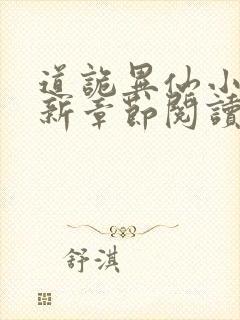 道詭異仙小
新章節閱讀
舒淇